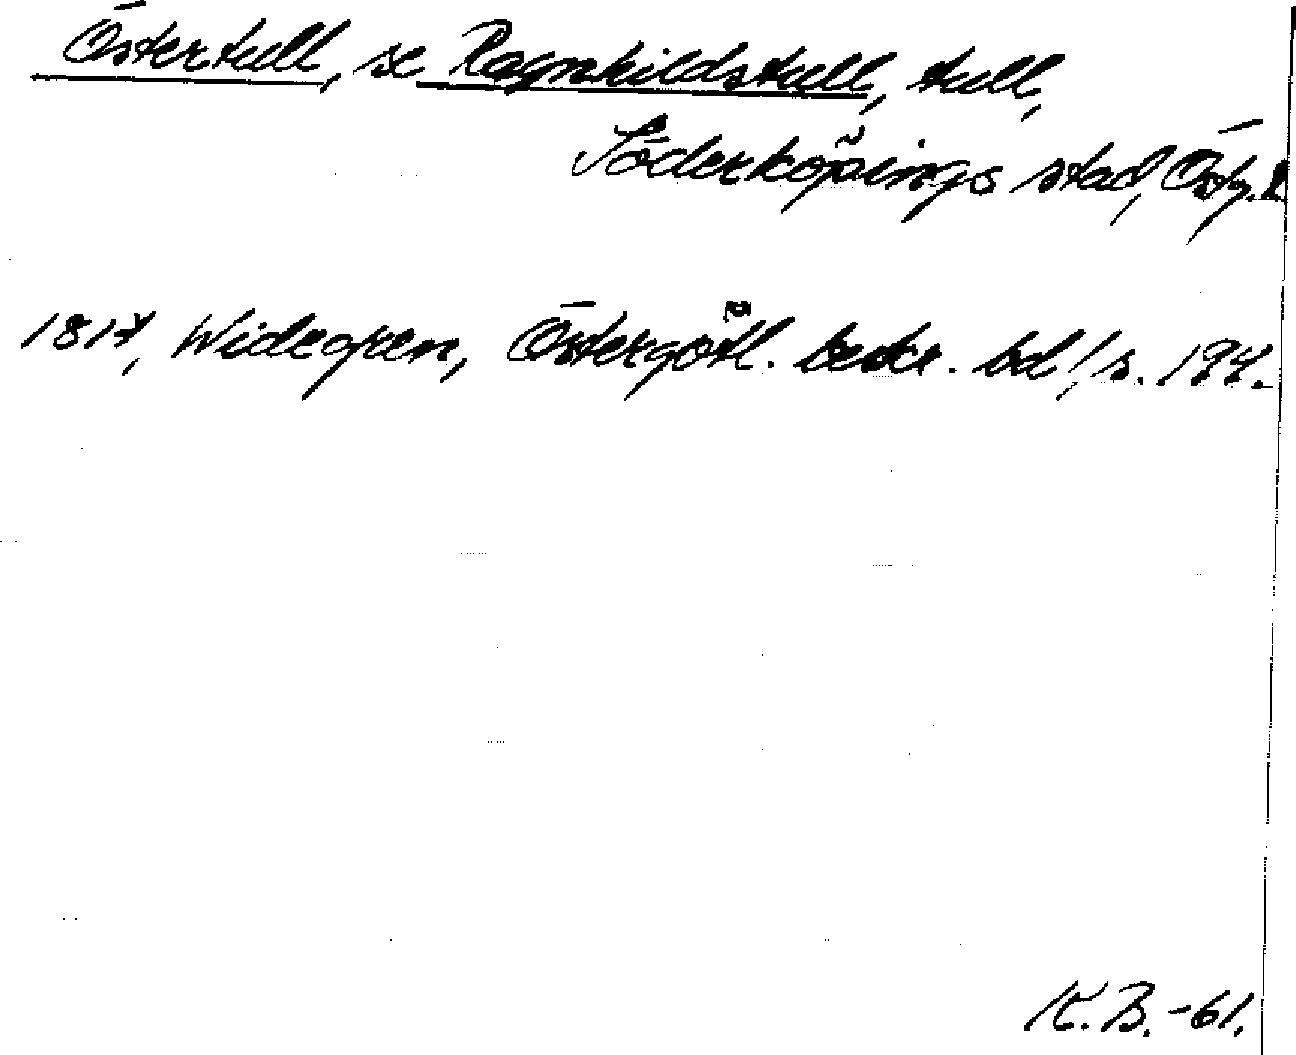 Östertull, se Ragnhildstull, tull,
Söderköpings stad, Östg. l.
1817, Widegren, Östergötl. beskr. bd 1 s. 194.
K.B. -61.